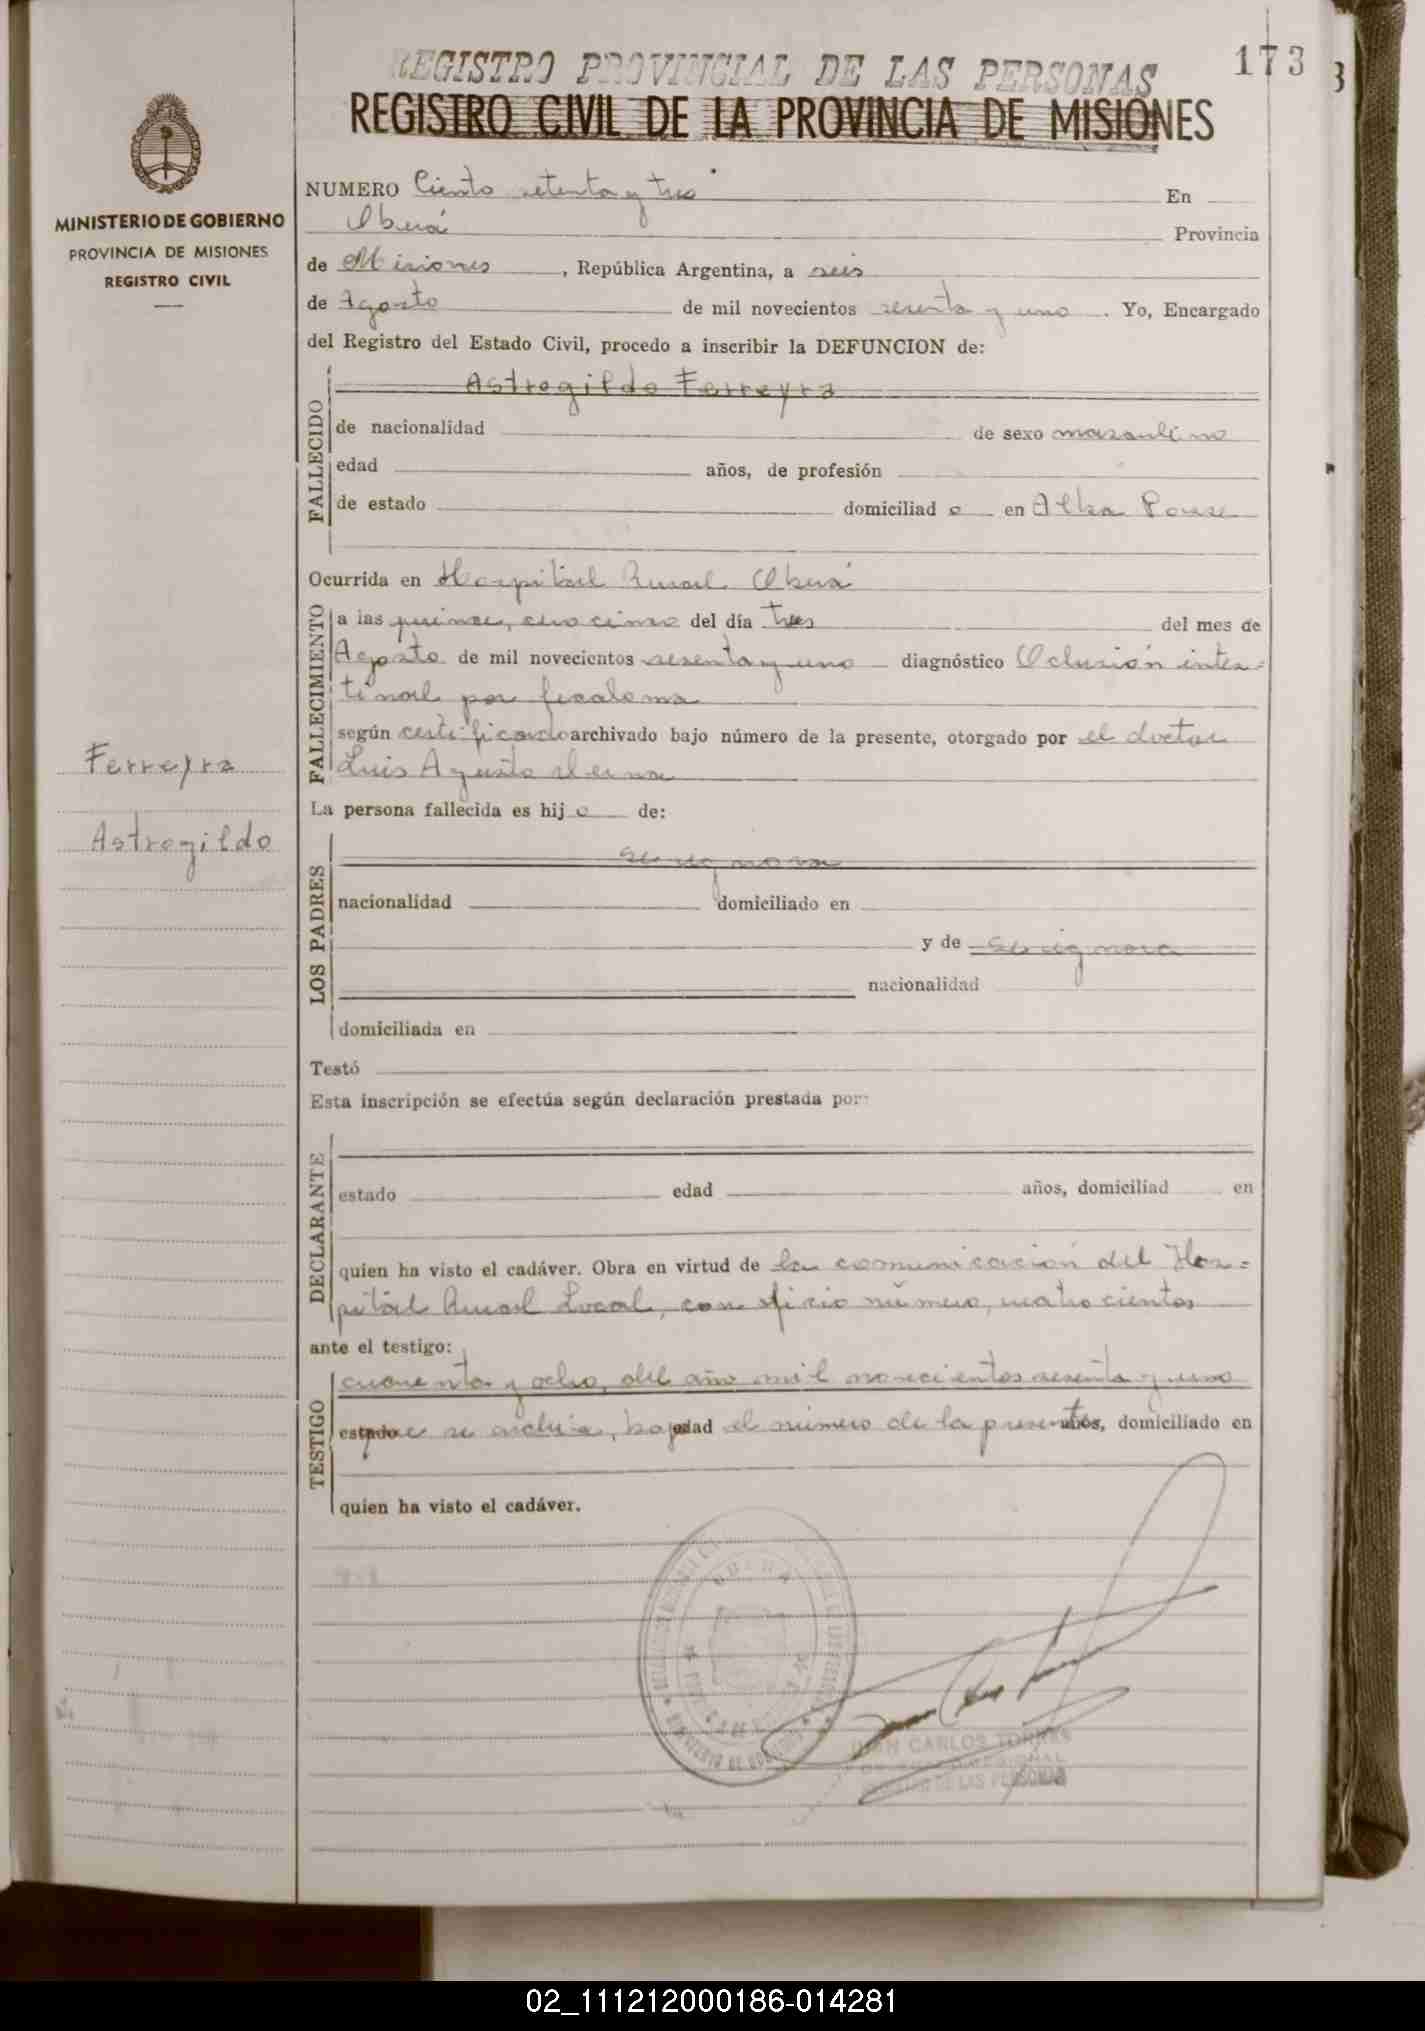 REGISTRO PROVINCIAL DE LAS PERSONAS
173
REGISTRO CIVIL DE LA PROVINCIA DE MISIONES
MINISTERIO DE GOBIERNO
PROVINCIA DE MISIONES
REGISTRO CIVIL
NUMERO Ciento setenta y tres En
Oberá Provincia
de Misiones, República Argentina, a seis
de Agosto de mil novecientos sesenta y uno. Yo, Encargado
del Registro del Estado Civil, procedo a inscribir la DEFUNCION de:
Astrogildo Ferreyra
FALLECIDO
de nacionalidad de sexo masculino
edad años, de profesión
de estado domiciliad o en Alba Posse
Ocurrida en Hospital Rural Oberá
FALLECIMIENTO
a las quince, cero cinco del día tres del mes de
Agosto de mil novecientos sesenta y uno diagnóstico Oclusión intes=
tinal por fecaloma
según certificado archivado bajo número de la presente, otorgado por el doctor
Luis Agusto
Ferreyra
Astrogildo
La persona fallecida es hij o de:
LOS PADRES
se ignora
nacionalidad domiciliado en
y de se ignora
nacionalidad
domiciliada en
Testó
Esta inscripción se efectúa según declaración prestada por:
DECLARANTE
estado edad años, domiciliad en
quien ha visto el cadáver. Obra en virtud de la comunicación del Hos=
pital Rural Local, con oficio número, cuatrocientos
ante el testigo:
TESTIGO
cuarenta y ocho, del año mil novecientos sesenta y uno
estado que se archiva, bajo edad el número de la presente años, domiciliado en
quien ha visto el cadáver.
OBERA
JUAN CARLOS TORRES
DE LAS PERSONAS
02_111212000186-014281